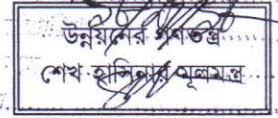 উন্নয়নের গণতন্ত্র
শেখ হাসিনার মূলমন্ত্র